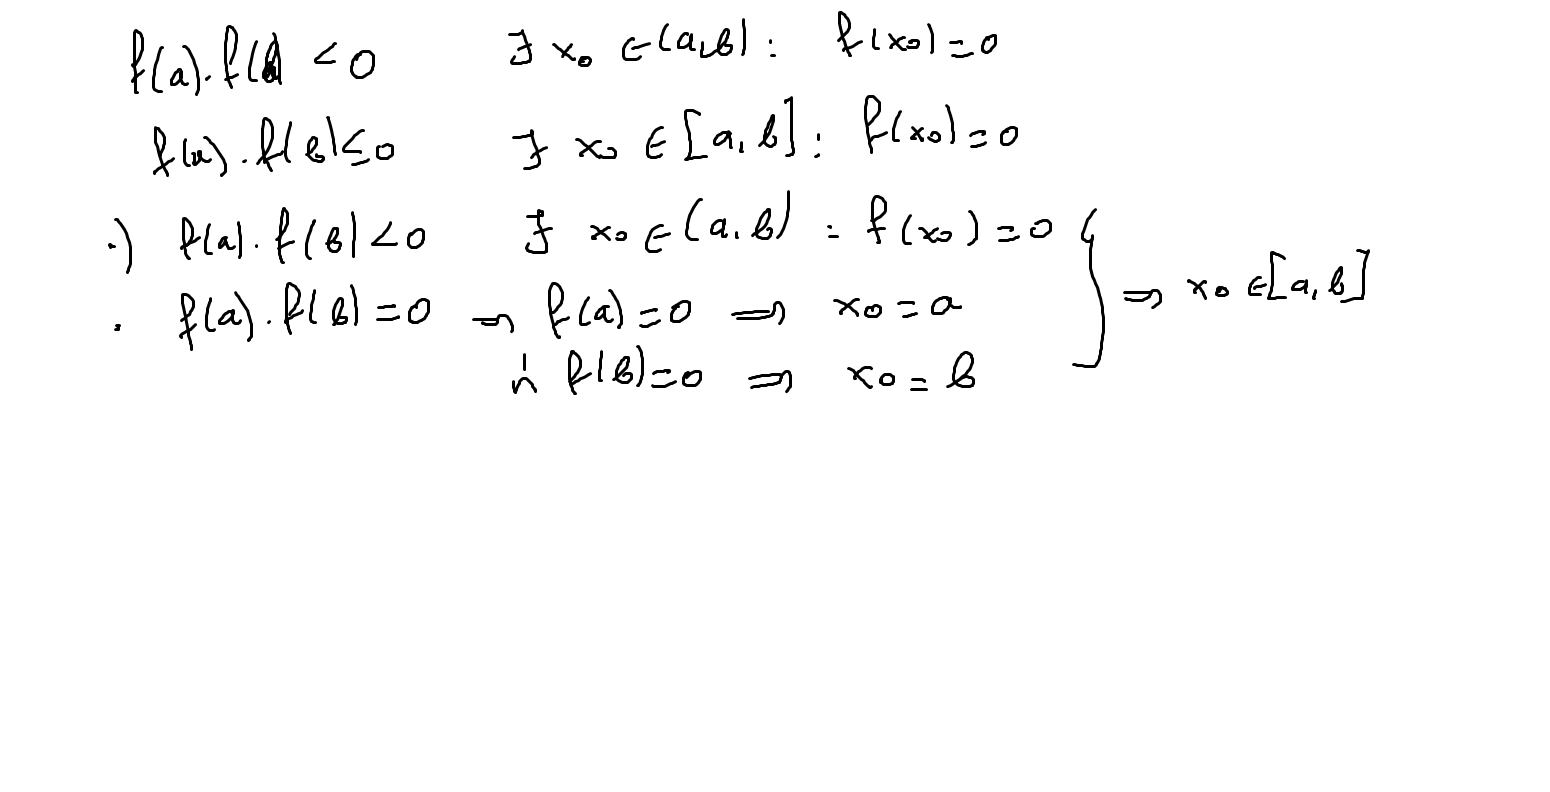 f(a).f(b) < 0 ∃ x₀ ∈ (a,b) : f(x₀) = 0
f(a).f(b) ≤ 0 ∃ x₀ ∈ [a,b] : f(x₀) = 0
·) f(a).f(b) < 0 ∃ x₀ ∈ (a,b) : f(x₀) = 0 } ⇒ x₀ ∈ [a,b]
· f(a).f(b) = 0 ⇒ f(a) = 0 ⇒ x₀ = a
ή f(b) = 0 ⇒ x₀ = b